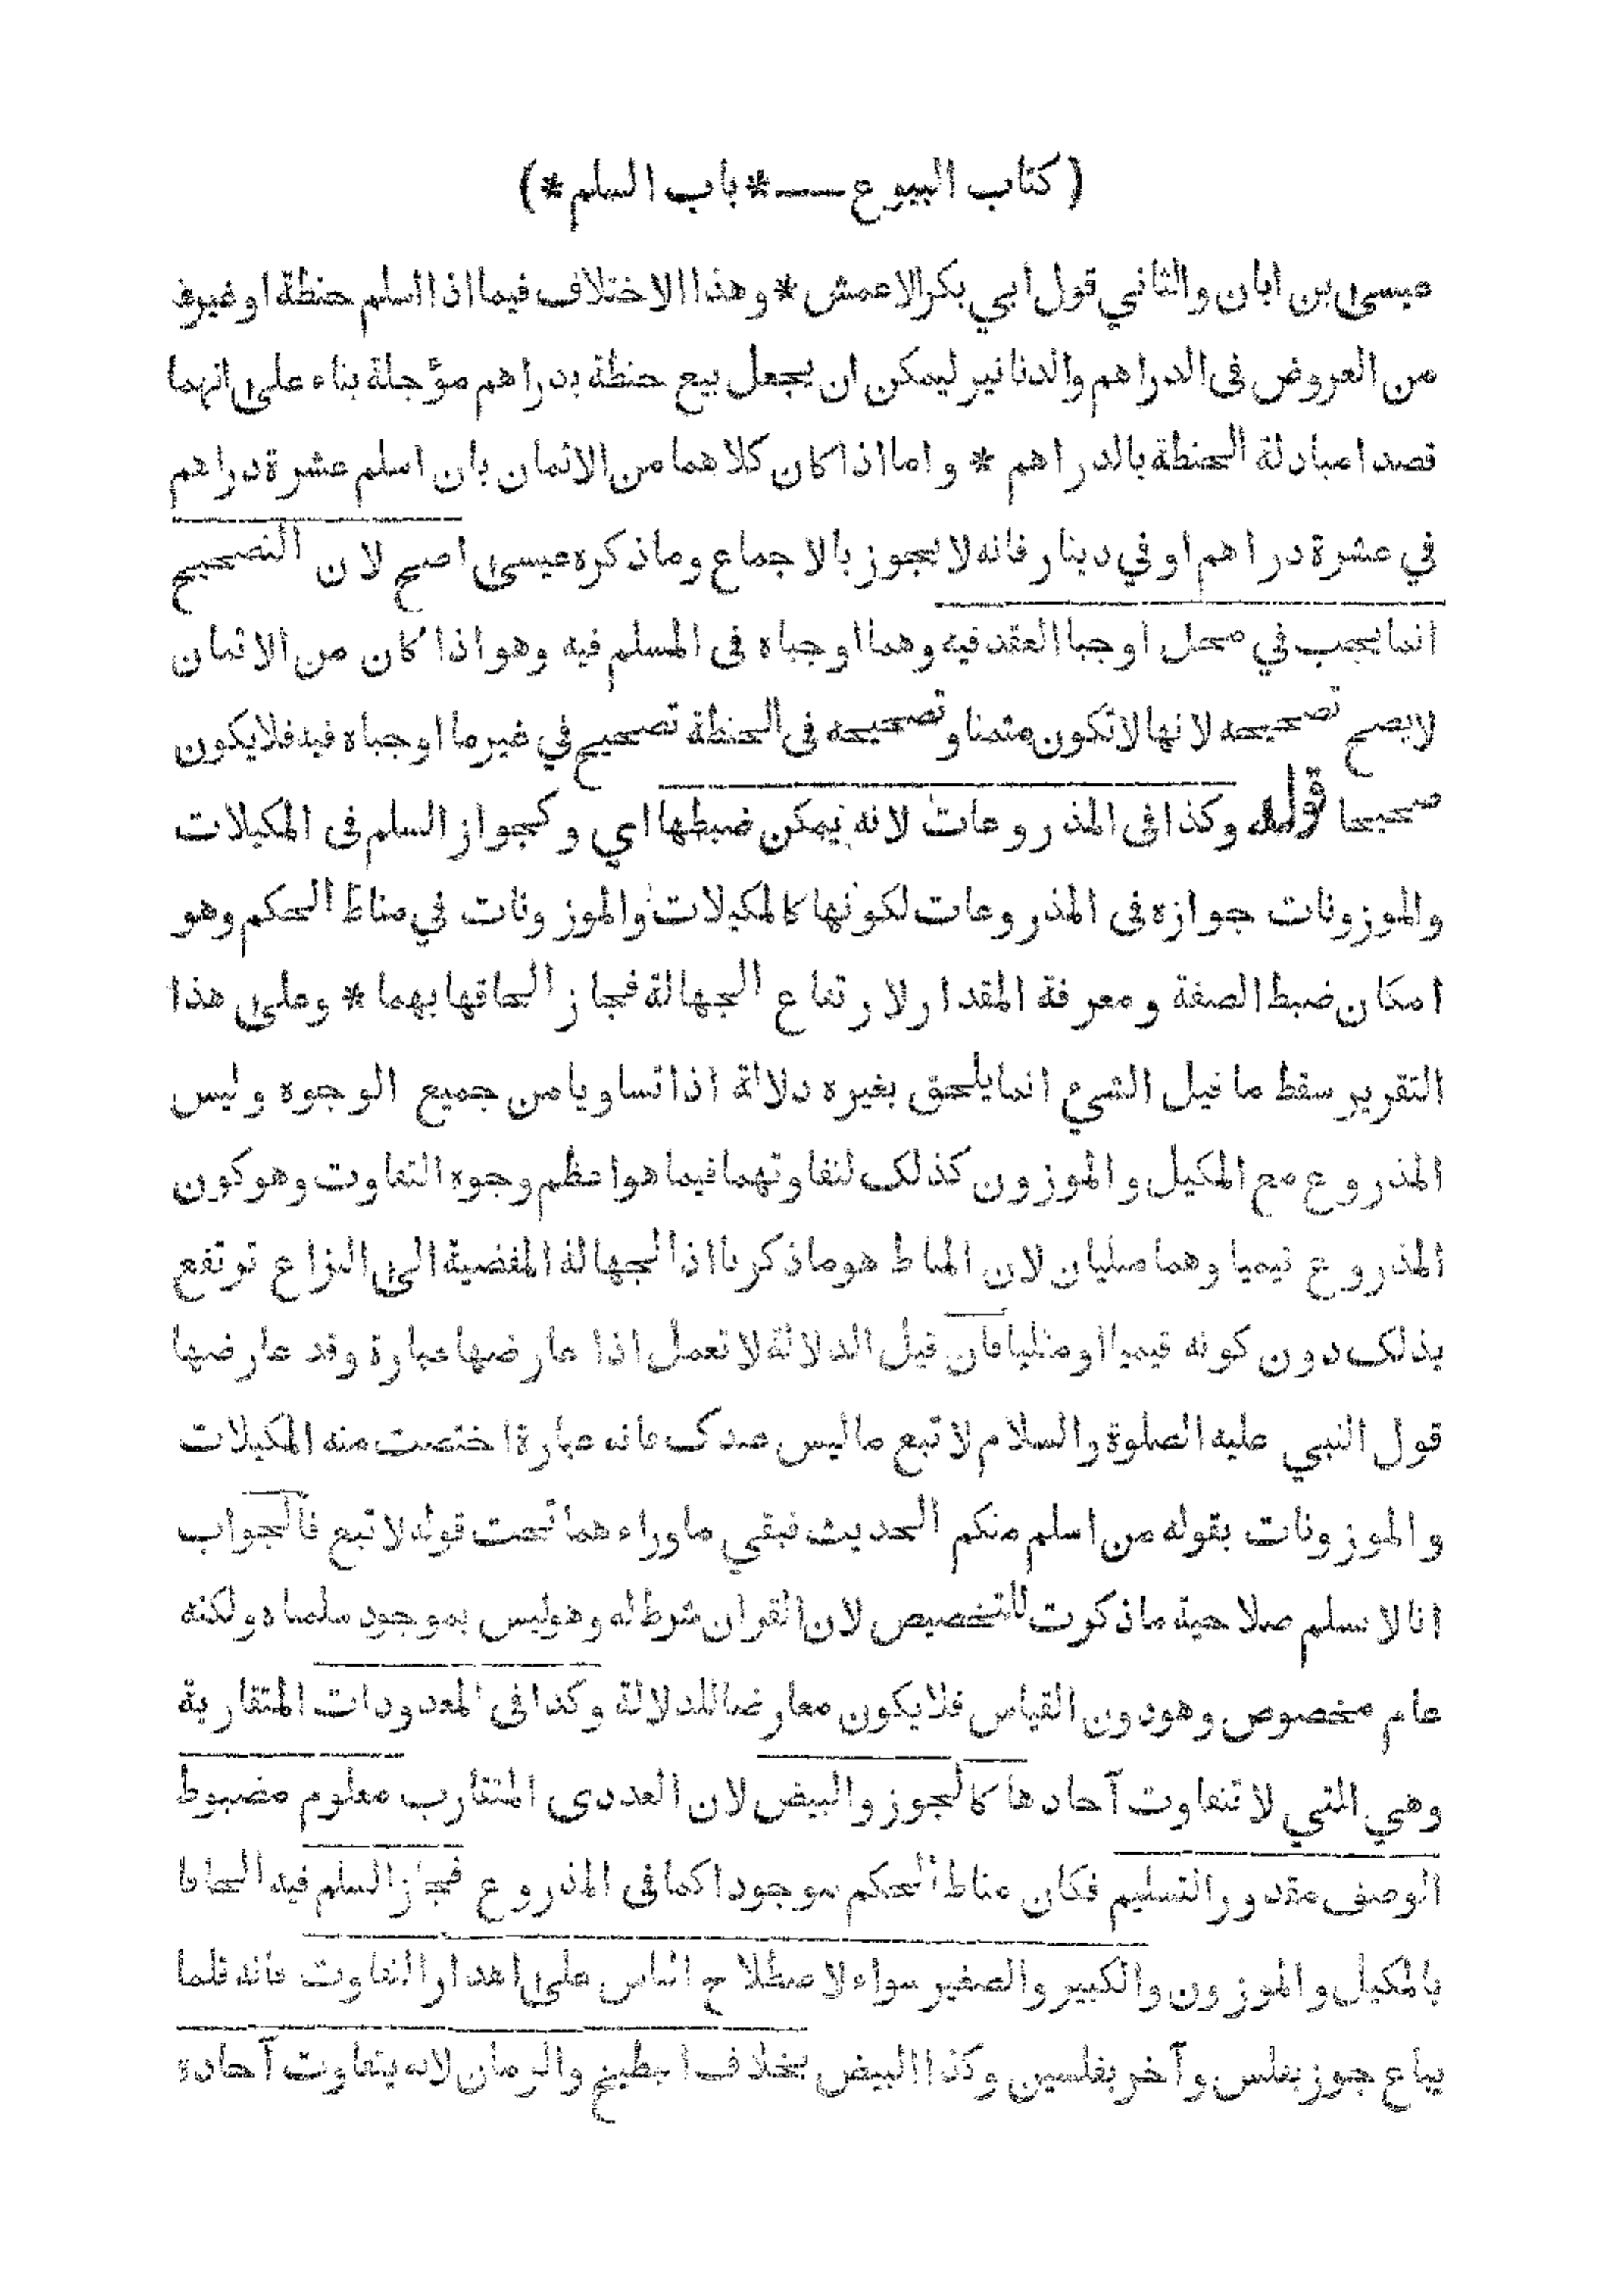 ( كتاب البيوع — * باب السلم * )
عيسى بن ابان والثاني قول ابي بكر الاعمش * وهذا الاختلاف فيما اذا اسلم حنطة اوغيره
من العروض فى الدراهم والدنانير ليمكن ان يجعل بيع حنطة بدراهم مؤجلة بناء على انهما
قصدا مبادلة الحنطة بالدراهم * واما اذا كان كلاهما من الاثمان بان اسلم عشرة دراهم
في عشرة دراهم اوفي دينار فانه لا يجوز بالاجماع وماذكره عيسى اصح لان التصحيح
انما يجب في محل اوجبا العقد فيه وهما اوجباه فى المسلم فيه وهو اذا كان من الاثمان
لايصح تصحيحه لانها لاتكون مثمنا وتصحيحه فى الحنطة تصحيح في غير ما اوجباه فيه فلايكون
صحيحا قوله وكذا فى المذروعات لانه يمكن ضبطها اي وكجواز السلم فى المكيلات
والموزونات جوازه فى المذروعات لكونها كالمكيلات والموزونات في مناط الحكم وهو
امكان ضبط الصفة ومعرفة المقدار لارتفاع الجهالة فجاز الحاقها بهما * وعلى هذا
التقرير سقط ما قيل الشيء انما يلحق بغيره دلالة اذا تساويا من جميع الوجوه وليس
المذروع مع المكيل والموزون كذلك لتفاوتهما فيما هو اعظم وجوه التفاوت وهو كون
المذروع قيميا وهما مثليان لان المناط هو ماذكرنا اذ الجهالة المفضية الى النزاع ترتفع
بذلك دون كونه قيميا او مثليا فان قيل الدلالة لا تعمل اذا عارضها عبارة وقد عارضها
قول النبي عليه الصلوة والسلام لا تبع ماليس عندك فانه عبارة اختصت منه المكيلات
والموزونات بقوله من اسلم منكم الحديث فبقي ماوراءهما تحت قوله لا تبع فالجواب
انا لا نسلم صلاحية ماذكرت للتخصيص لان القران شرط له وهو ليس بموجود سلمناه ولكنه
عام مخصوص وهو دون القياس فلايكون معارضا للدلالة وكذا فى المعدودات المتقاربة
وهي التي لا تتفاوت آحادها كالجوز والبيض لان العددى المتقارب معلوم مضبوط
الوصف مقدور التسليم فكان مناط الحكم موجودا كما فى المذروع فجاز السلم فيه الحاقا
بالمكيل والموزون والكبير والصغير سواء لاصطلاح الناس على اهدار التفاوت فانه قلما
يباع جوز بفلس وآخر بفلسين وكذا البيض بخلاف البطيخ والرمان لانه يتفاوت آحاده